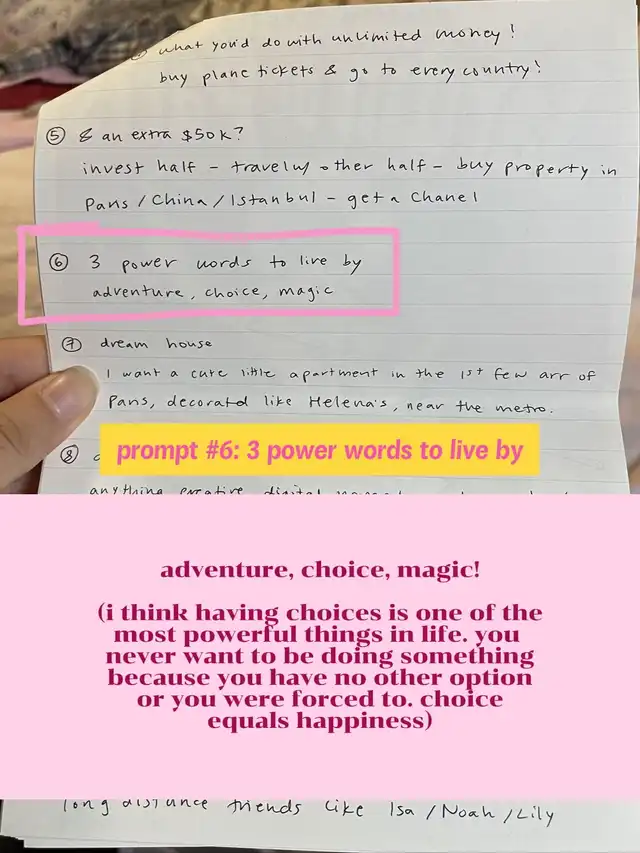 what you'd do with unlimited money!
buy plane tickets & go to every country!
⑤ & an extra $50k?
invest half - travel w/ other half - buy property in
Paris / China / Istanbul - get a Chanel
⑥ 3 power words to live by
adventure, choice, magic
⑦ dream house
I want a cute little apartment in the 1st few arr of
Paris, decorated like Helena's, near the metro.
prompt #6: 3 power words to live by
⑧
anything creative, digital
adventure, choice, magic!
(i think having choices is one of the
most powerful things in life. you
never want to be doing something
because you have no other option
or you were forced to. choice
equals happiness)
long distance friends like Isa / Noah / Lily